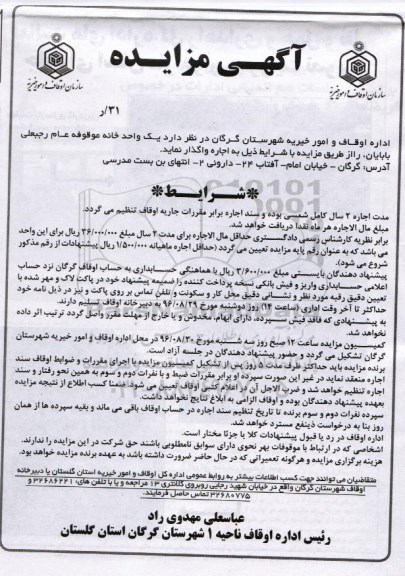 آگهی مزایده
سازمان اوقاف و امور خیریه
سازمان اوقاف و امور خیریه
۳۱/ر
اداره اوقاف و امور خیریه شهرستان گرگان در نظر دارد یک واحد خانه موقوفه عام رجبعلی
بابایان، را از طریق مزایده با شرایط ذیل به اجاره واگذار نماید.
آدرس: گرگان - خیابان امام- آفتاب ۲۴- دارونی ۲- انتهای بن بست مدرسی
*شرایط*
مدت اجاره ۲ سال کامل شمسی بوده و سند اجاره برابر مقررات جاریه اوقاف تنظیم می گردد.
مبلغ مال الاجاره هر ماه نقداً دریافت خواهد شد.
برابر نظریه کارشناس رسمی دادگستری حداقل مال الاجاره برای مدت ۲ سال مبلغ ۳۶/۰۰۰/۰۰۰ ریال برای این واحد
می باشد که به عنوان رقم پایه مزایده تعیین می گردد (حداقل اجاره ماهیانه ۱/۵۰۰/۰۰۰ ریال پیشنهادات از رقم مذکور
شروع می شود).
پیشنهاد دهندگان بایستی مبلغ ۳/۶۰۰/۰۰۰ ریال با هماهنگی حسابداری به حساب اوقاف گرگان نزد حساب
اعلامی حسابداری واریز و فیش بانکی نسخه پرداخت کننده را ضمیمه پیشنهاد خود در پاکت لاک و مهر شده با
تعیین دقیق رقبه مورد نظر و نشانی دقیق محل کار و سکونت و تلفن تماس بر روی پاکت و نیز در ذیل نامه خود
حداکثر تا آخر وقت اداری (ساعت ۱۴) روز دوشنبه مورخ ۹۶/۰۸/۲۹ به دبیرخانه اوقاف تسلیم دارند.
به پیشنهادی که فاقد فیش سپرده، دارای ابهام، مخدوش و یا خارج از مهلت مقرر واصل گردد ترتیب اثر داده
نخواهد شد.
کمیسیون مزایده ساعت ۱۲ صبح روز سه شنبه مورخ ۹۶/۰۸/۳۰ در محل اداره اوقاف و امور خیریه شهرستان
گرگان تشکیل می گردد و حضور پیشنهاد دهندگان در جلسه آزاد است.
برنده مزایده باید حداکثر ظرف مدت ۵ روز پس از تشکیل کمیسیون مزایده با اجرای مقررات و ضوابط اوقاف سند
اجاره منعقد نماید در غیر این صورت سپرده او برابر مقررات ضبط و با نفرات دوم و سوم به همین نحو رفتار و سند
اجاره تنظیم خواهد شد و ضرب الاجل آن در اعلام کتبی اوقاف تعیین می شود. ضمناً کسب اطلاع از نتیجه مزایده
بعهده پیشنهاد دهندگان بوده و اوقاف الزامی به ابلاغ نتایج نخواهد داشت.
سپرده نفرات دوم و سوم برنده تا تاریخ تنظیم سند اجاره در حساب اوقاف باقی می ماند و بقیه سپرده ها از همان
روز بنا به درخواست ذینفع مسترد خواهد شد.
اداره اوقاف در رد یا قبول پیشنهادات کلا یا جزئا مختار است.
اشخاصی که در ارتباط با موقوفات بهر نحوی دارای سوابق نامطلوبی باشند حق شرکت در این مزایده را ندارند.
هزینه برگزاری مزایده و هرگونه تعمیراتی که در حال حاضر ضرورت داشته باشد به عهده برنده مزایده خواهد بود.
متقاضیان می توانند جهت کسب اطلاعات بیشتر به روابط عمومی اداره کل اوقاف و امور خیریه استان گلستان یا دبیرخانه
اوقاف شهرستان گرگان واقع در خیابان شهید رجایی روبروی کلانتری ۱۳ مراجعه و یا با تلفن های: ۳۲۶۸۶۲۲۱ و
۳۲۶۸۰۷۷۵ تماس حاصل فرمایند.
عباسعلی مهدوی راد
رئیس اداره اوقاف ناحیه ۱ شهرستان گرگان استان گلستان